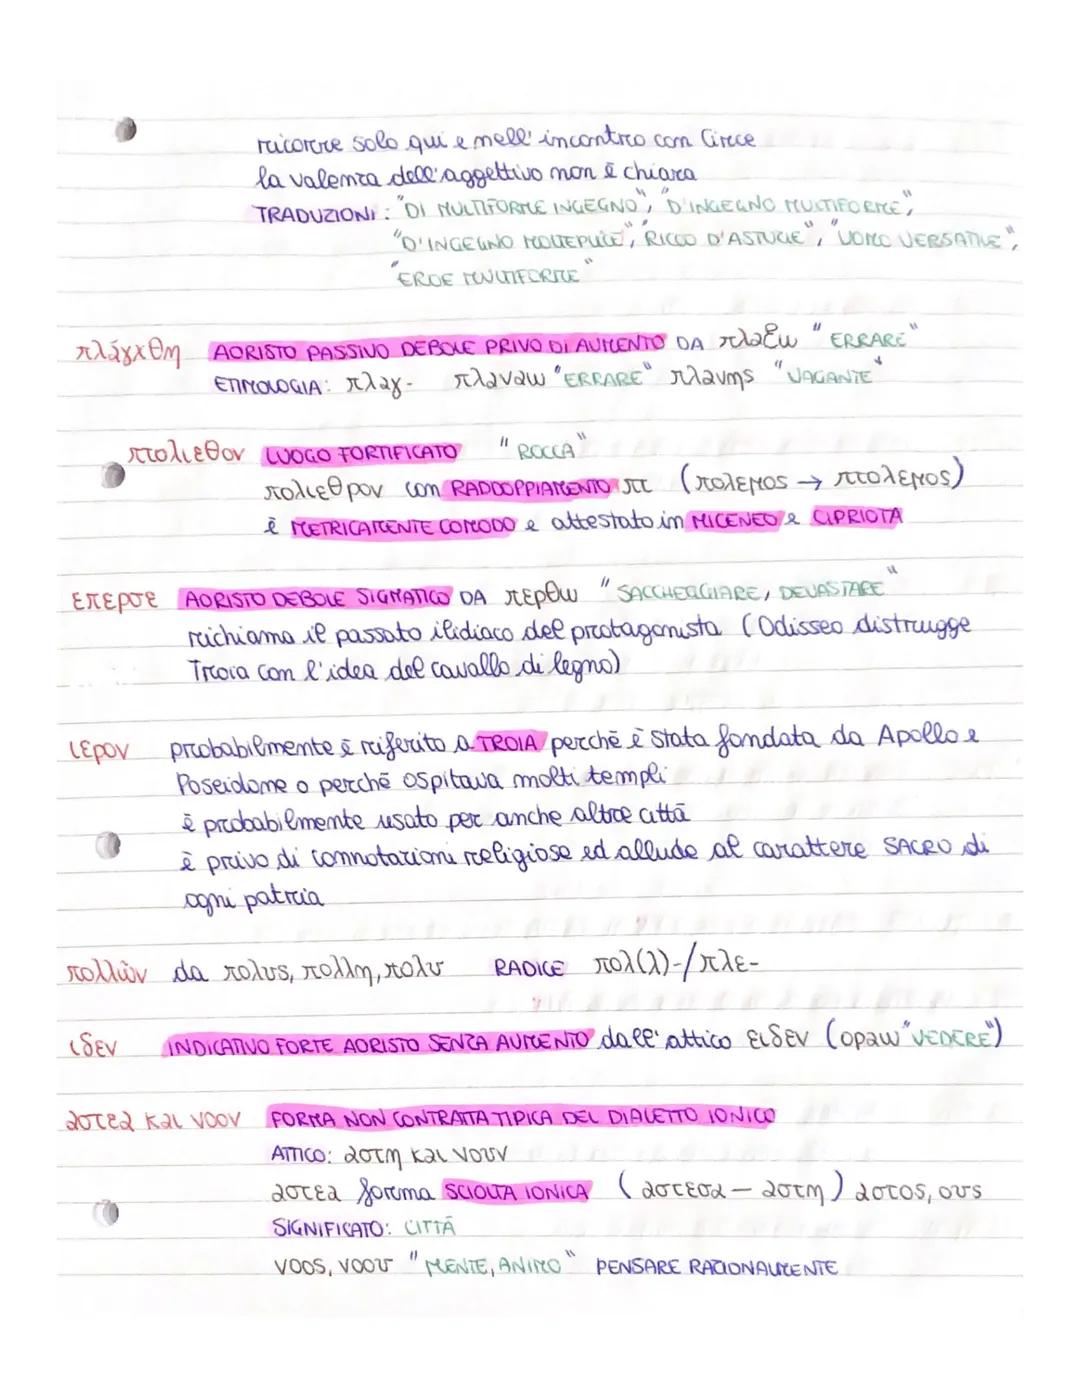 ricorre solo qui e nell' incontro con Circe
la valenza dell'aggettivo non è chiara
TRADUZIONI: "DI MULTIFORME INGEGNO", "D'INGEGNO MULTIFORME",
"D'INGEGNO MOLTEPLICE", "RICCO D'ASTUZIE", "UOMO VERSATILE",
"EROE MULTIFORME"
πλάγχθη AORISTO PASSIVO DEBOLE PRIVO DI AUMENTO DA πλαζω "ERRARE"
ETIMOLOGIA: πλαγ- πλαναω "ERRARE" πλανης "VAGANTE"
πτολιεθον LUOGO FORTIFICATO "ROCCA"
πολιεθρον con RADDOPPIAMENTO ππ (πολεμος → πτολεμος)
è METRICAMENTE COMODO e attestato in MICENEO e CIPRIOTA
επερσε AORISTO DEBOLE SIGMATICO DA περθω "SACCHEGGIARE, DEVASTARE"
richiama il passato ilidiaco del protagonista (Odisseo distrugge
Troia con l'idea del cavallo di legno)
ιερον probabilmente è riferito a TROIA perché è stata fondata da Apollo e
Poseidone o perché ospitava molti templi
è probabilmente usato per anche altre città
è privo di connotazioni religiose ed allude al carattere SACRO di
ogni patria
πολλῶν da πολυς, πολλη, πολυ RADICE πολ(λ)-/πλε-
ιδεν INDICATIVO FORTE AORISTO SENZA AUMENTO dall' attico ειδεν (οραω "VEDERE")
αστεα και νοον FORMA NON CONTRATTA TIPICA DEL DIALETTO IONICO
ATTICO: αστη και νουν
αστεα forma SCIOLTA IONICA (αστεσα - αστη) αστος, ους
SIGNIFICATO: CITTÀ
νοος, νοου "MENTE, ANIMO" PENSARE RAZIONALMENTE